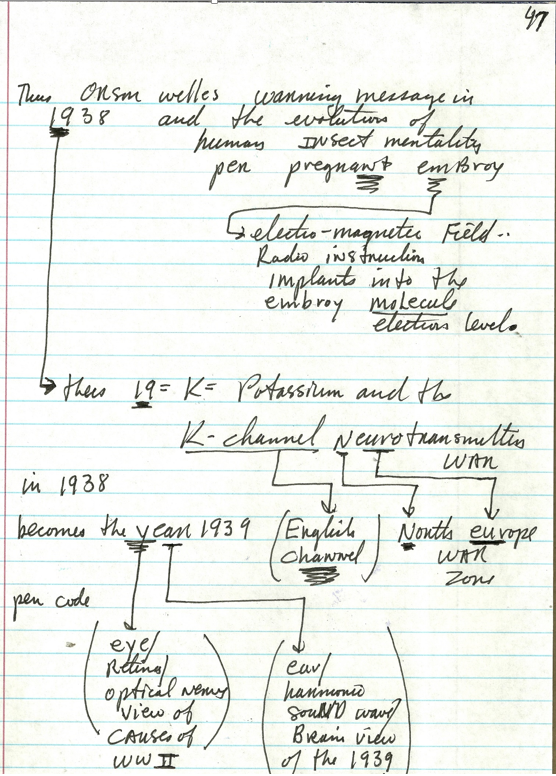 47
Thus Orson welles warning message in
1938 and the evolution of
human INsect mentality
per pregnant embroy
electro-magnetic Field..
Radio instruction
implants into the
embroy molecule
electron level.
thus 19 = K = Potassium and the
K-channel Neurotransmitters
WAR
in 1938
becomes the year 1939
(English
channel)
North europe
WAR
Zone
per code
(eye/
Retina/
optical nerve
view of
CAUSES of
WW II
(ear/
harmonic
sound wave/
Brain view
of the 1939